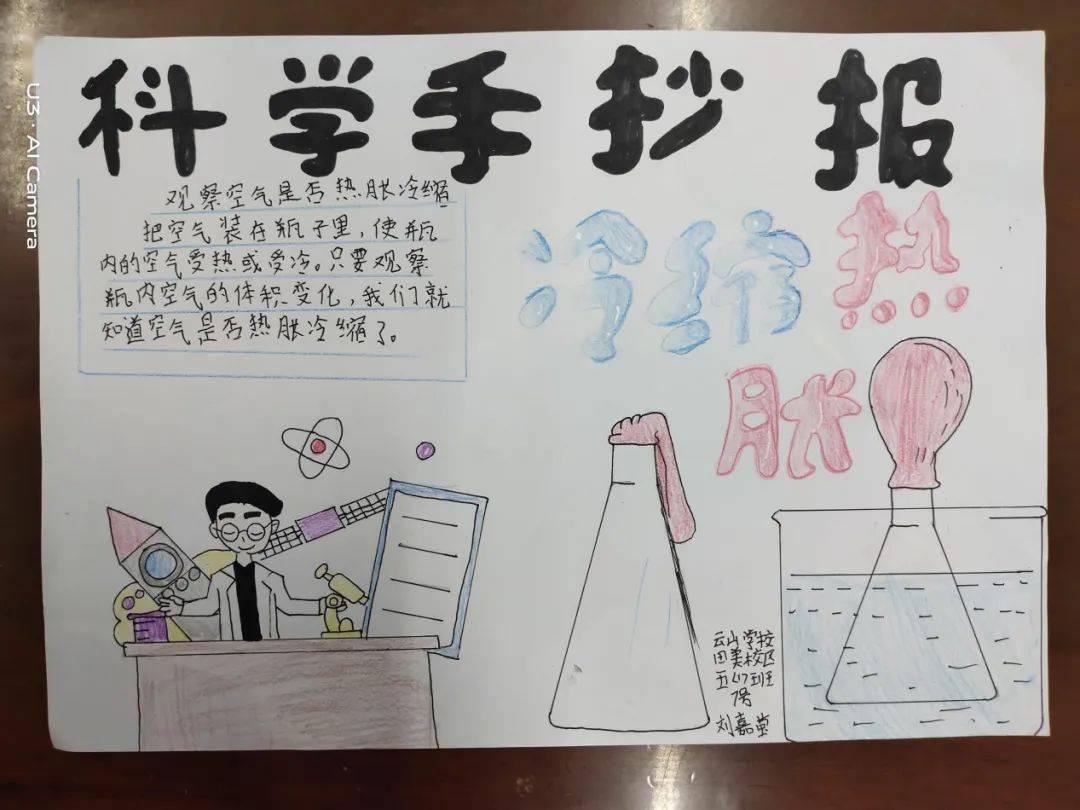 科学手抄报
观察空气是否热胀冷缩
把空气装在瓶子里，使瓶
内的空气受热或受冷。只要观察
瓶内空气的体积变化，我们就
知道空气是否热胀冷缩了。
冷缩热
胀
云山学校
田美校区
五(1)班
7号
刘嘉莹
U3·AI Camera